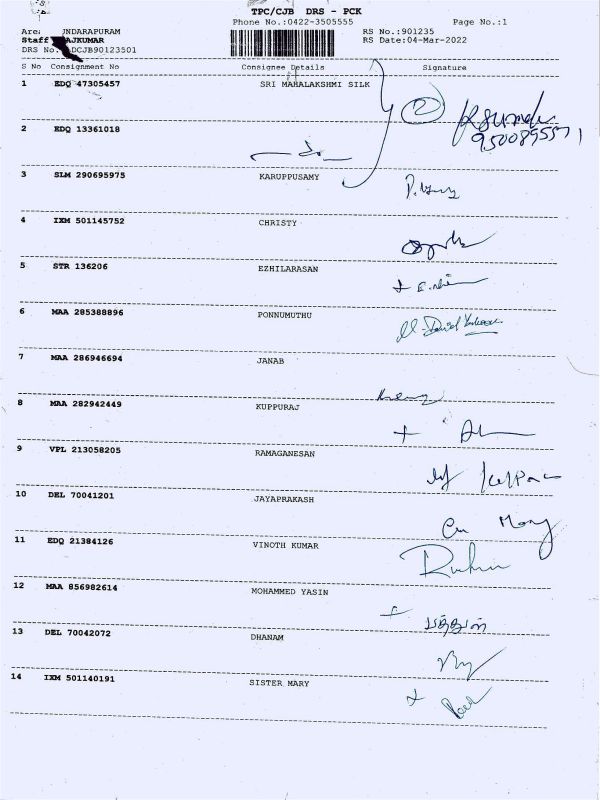 TPC/CJB DRS - PCK
Phone No.:0422-3505555 Page No.:1
Are: UNDARAPURAM RS No.:901235
Staff AJKUMAR RS Date:04-Mar-2022
DRS No. ADCJB90123501
S No Consignment No Consignee Details Signature
1 EDQ 47305457 SRI MAHALAKSHMI SILK
2
9500895571
2 EDQ 13361018
do
3 SLM 290695975 KARUPPUSAMY
4 IXM 501145752 CHRISTY
5 STR 136206 EZHILARASAN
6 MAA 285388896 PONNUMUTHU
7 MAA 286946694 JANAB
8 MAA 282942449 KUPPURAJ
9 VPL 213058205 RAMAGANESAN
10 DEL 70041201 JAYAPRAKASH
11 EDQ 21384126 VINOTH KUMAR
12 MAA 856982614 MOHAMMED YASIN
13 DEL 70042072 DHANAM
14 IXM 501140191 SISTER MARY